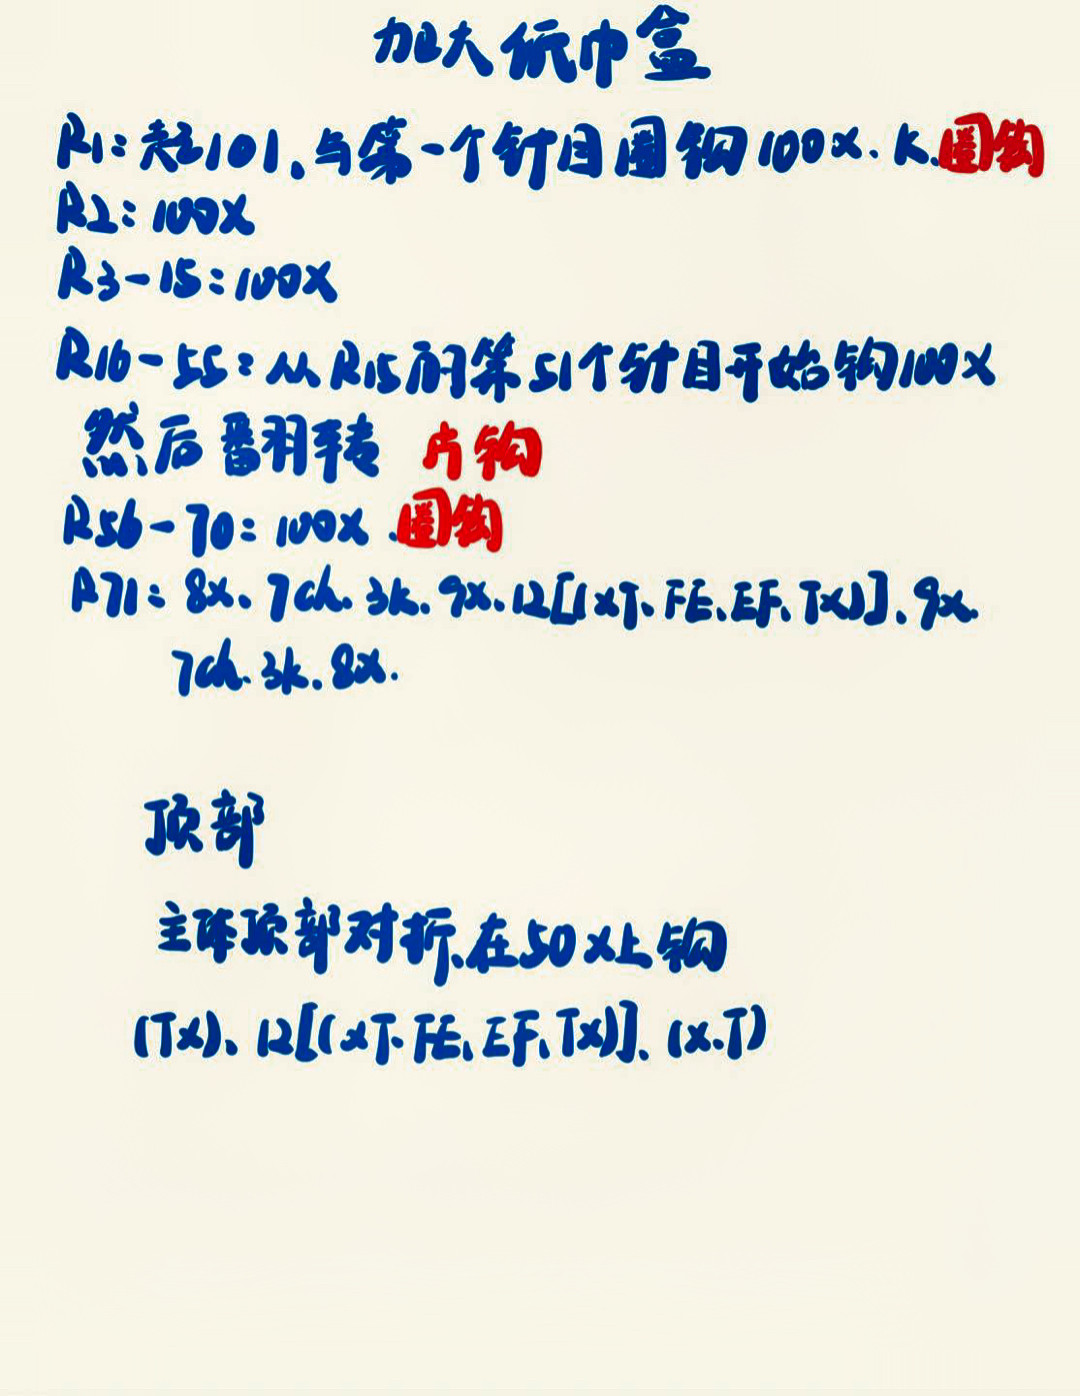 加大纸巾盒
R1:起101、与第一个针目圈钩100x、K、圈钩
R2:100X
R3-15:100X
R16-55:从R15的第51个针目开始钩100X
然后翻转 片钩
R56-70:100X、圈钩
R71:8x、7ch、3k、9x、12[(xT、FE、EF、Tx)]、9x、
7ch、3k、8x.
顶部
主体顶部对折、在50x上钩
(Tx)、12[(xT、FE、EF、Tx)]、(x、T)